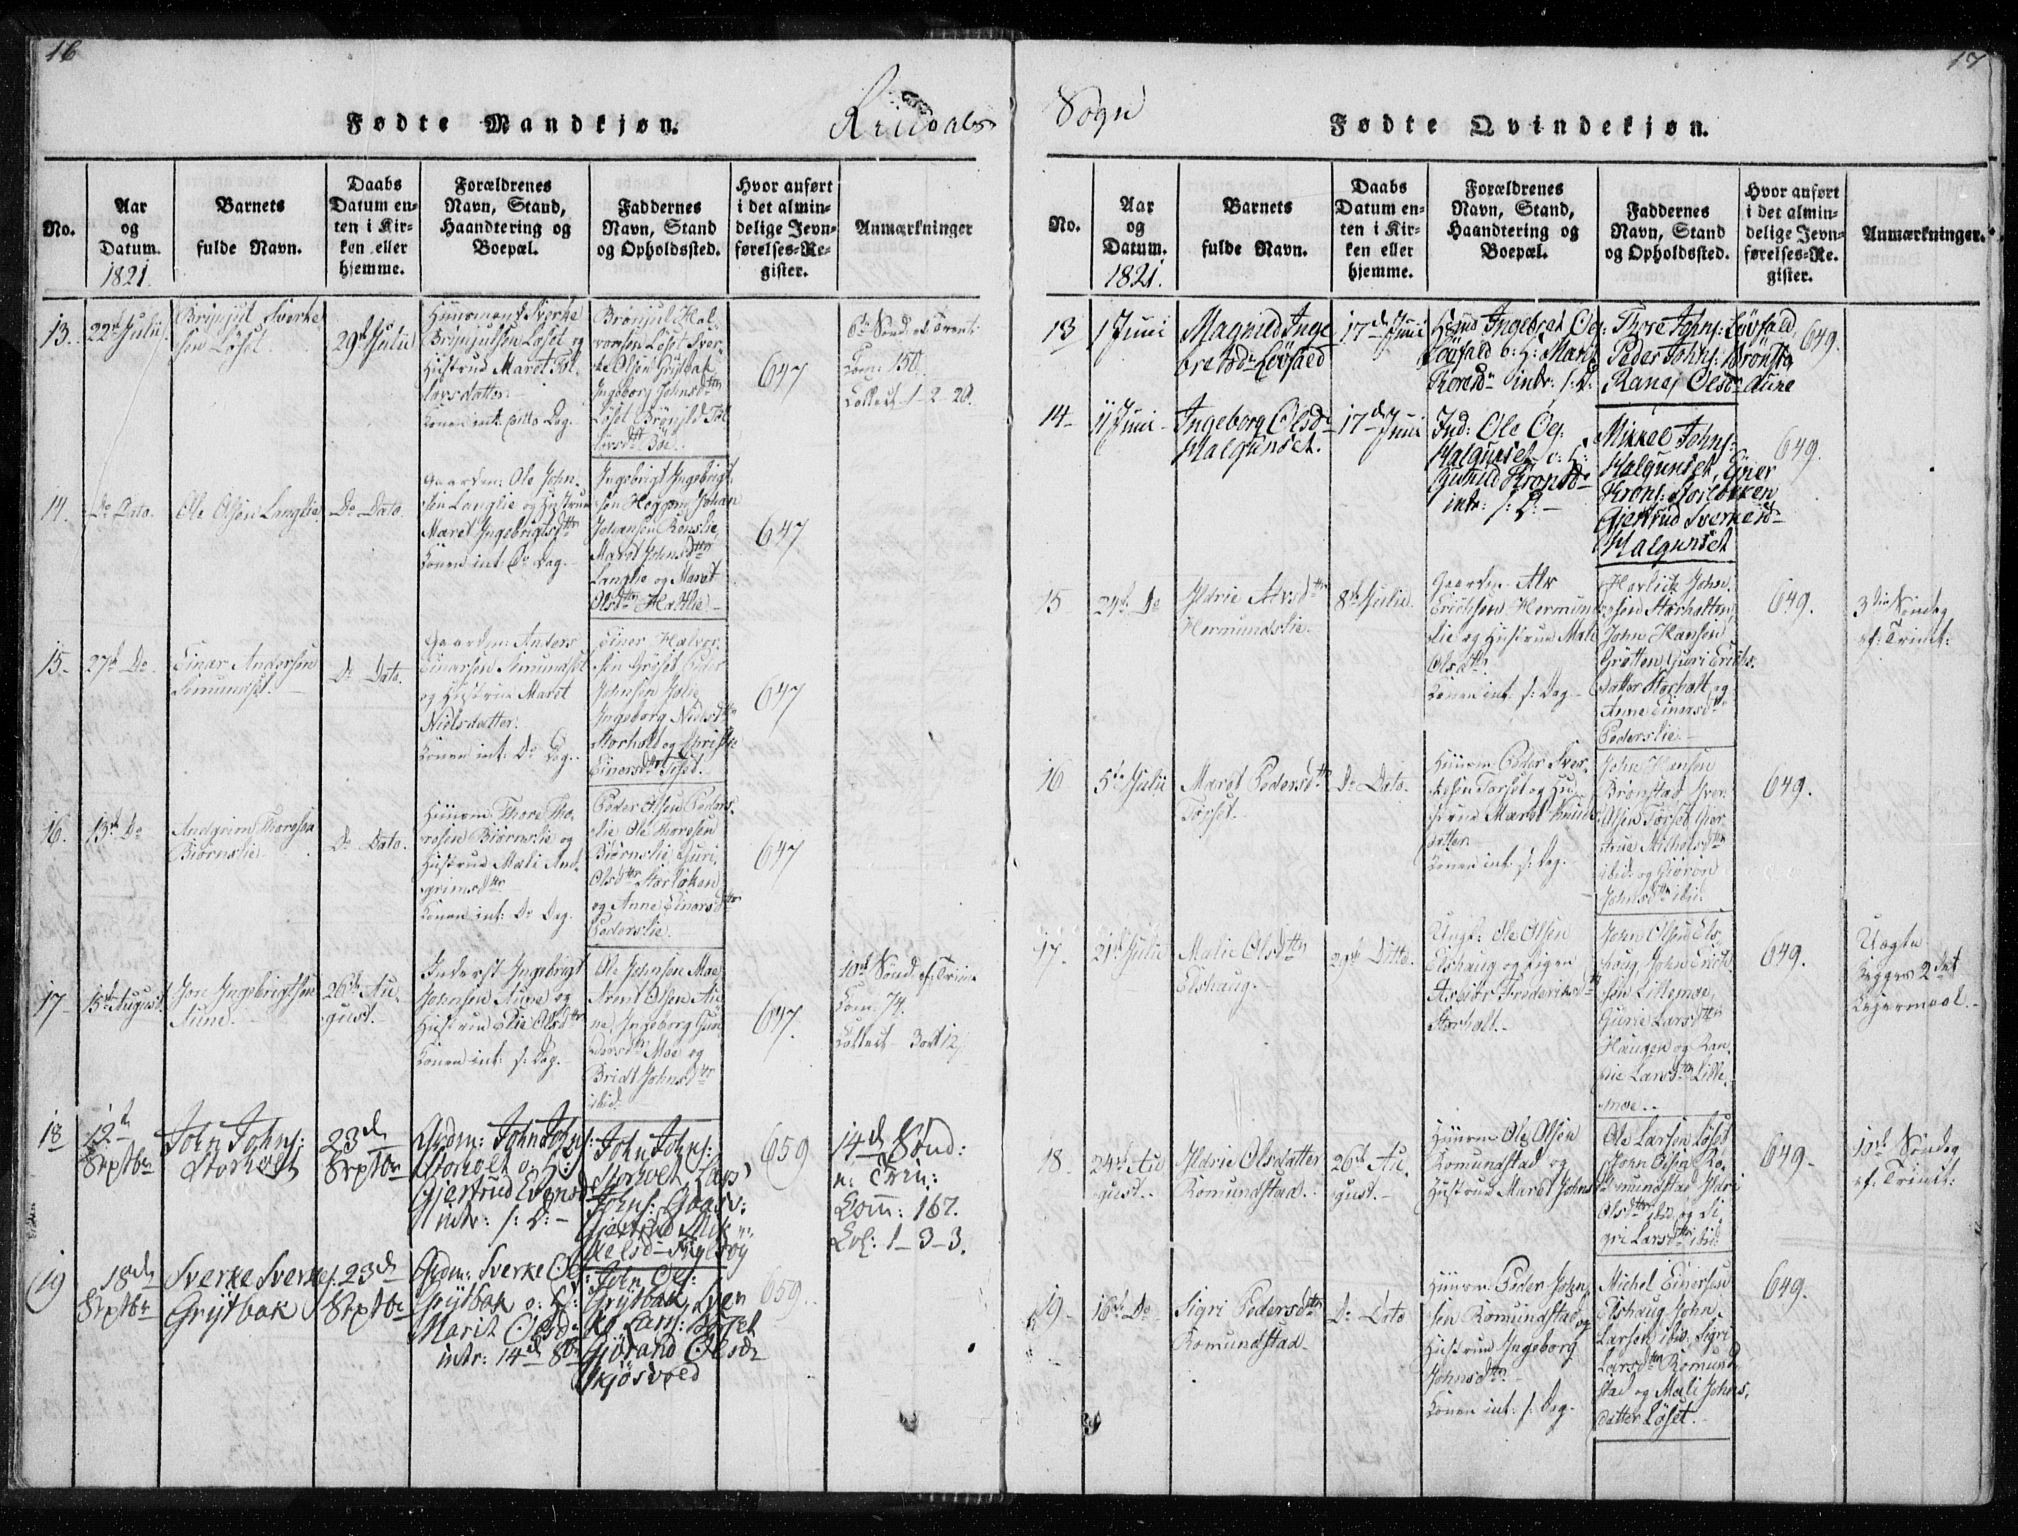 16
Fødte Mandkjøn.
Rindals
No.
Aar
og
Datum.
1821.
Barnets
fulde Navn.
Daabs
Datum en-
ten i Kir-
ken eller
hjemme.
Forældrenes
Navn, Stand,
Haandtering og
Boepæl.
Faddernes
Navn, Stand
og Opholdssted.
Hvor anført
i det almin-
delige Jevn-
førelses-Re-
gister.
Anmærkninger
13.
22de Julii
Brynjul Sverke
sen Løset
29de Julii
Huusmand Sverke
Brynjulsen Løset og
Hustrue Maret Tol-
levsdatter
Konen int: samme Dag.
Brønjul Hal-
vorsen Løset Sver-
ke Olsen Grytbak
Ingeborg Johnsdttr
Løset Brønild Tol
levsdttr Bøe.
647
6te Sønd. ef. Trinit:
Com: 150.
Collect 1-2-20.
14.
Do Dato.
Ole Olsen Langlie
Do Dato.
Gaardm: Ole John-
sen Langlie og Hustrue
Maret Ingebrigtsdttr
Konen int: Do Dag.
Ingebrigt Ingebrigt-
sen Heggem Johan
Johansen Rønslie,
Maret Johnsdttr
Langlie og Maret
Olsdttr Hattlie
647
15.
27de Do
Einar Andersen
Simundset.
Do Dato.
Gaardm: Anders
Einarsen Simundset
og Hustrue Maret
Nielsdatter.
Konen int: Do Dag.
Einer Halvor-
sen Gryset Peder
Johnsen Folie
Ingeborg Nielsdttr
Storholt og Christie
Einersdttr Toset.
647
16.
13de Do
Andgrim Thoresen
Biørnslie
Do Dato.
Huusm: Thore Tho-
resen Biørnslie og
Hustrue Mali And-
grimsdttr
Konen int: Do Dag.
Peder Olsen Peders-
lie Ole Thoresen
Biørnslie, Guri
Olsdttr Storløken
og Anne Einarsdttr
Pederslie.
647
17
15de August
Jon Ingebrigtsen
Aune.
26de Au-
gust.
Inderst Ingebrigt
Johnsen Aune og
Hustrue Elie Olsdttr
Konen int: s: Dag.
Ole Johnsen Moe
Arent Olsen Au-
ne, Ingeborg Gun
dersdttr Moe og
Bridt Johnsdttr
ibid.
647.
10de Sønd. ef. Trin.
Com. 74.
Collect 3 ort 12
18
12te
Septbr
John Johns:
Storholt
23de
Septbr
Gdm: John Johns:
Storholt o: H:
Gjertrud Evensd:
intr: s: D: -
John Johns:
Storholt, Lars
Johns: Gaasv:
Gjertrud Mik-
kelsd: Fuglsøy
659
14de Sønd:
n: Trin:
Com: 167.
Col: 1-3-3.
19
18de
Septbr
Sverke Sverkes:
Grytbak
23de
Septbr
Gdm: Sverke Ols:
Grytbak o: H:
Marit Olsd:
intr: 14de 8br
John Ols:
Grytbak, Sven
ke Lars: Løset
Gjörand Olsdr
Skjøsvold
659.
17
Sogn
Fødte Qvindekjøn.
No.
Aar
og
Datum.
1821.
Barnets
fulde Navn.
Daabs
Datum en-
ten i Kir-
ken eller
hjemme.
Forældrenes
Navn, Stand,
Haandtering og
Boepæl.
Faddernes
Navn, Stand
og Opholdssted.
Hvor anført
i det almin-
delige Jevn-
førelses-Re-
gister.
Anmærkninger.
13
1 Juni
Magnild Inge
bretsdr Løvsæld
17de Juni
Hsmd Ingebret Ols:
Løvsald o: H: Marit
Toresdr intr: s: D:
Thore Johns: Løvsald,
Peder Johns: Brønsta,
Ranej Olsdr Aune
649.
14
11 Juni
Ingeborg Olsd:
Halgunset.
17de Juni
Ind: Ole Ols:
Halgunset o: H:
Gunild Kronsdr
intr: s: D: -
Mikkel Johns:
Halgunset, Einer
Krons: Storløkken
Gjertrud Sverkesdr
Halgunset
649.
15
24de Do
Ildrie Alvsdttr
Hermundslie.
8de Julii.
Gaardm. Alv
Erichsen Hermund
lie og Hustrue Mali
Olsdttr
Konen int: s: Dag -
John-
sen Storholten,
John Hansen
Grøtten Guri Erichs-
datter Storholt, og
Anne Einersdttr
Pederslie.
649.
3die Søndag
ef: Trinit:
16
5te Julii
Maret Pedersdttr
Torset.
Do Dato.
Huusm: Peder Sver-
kesen Torset og Hu-
strue Maret Knuds-
datter
Konen int: s: Dag. -
John Hansen
Brønstad Sver
Olsen Torset Gier-
true Michelsdttr
ibid. og Giøron
Johnsdttr ibid.
649.
17.
21de Julii
Malie Olsdttr
Elshaug.
29de Ditto.
Ungk: Ole Olsen
Elshaug og Pigen
Asbiør Frederiksdttr
Storholt.
John Olsen Els-
haug, John Erich-
sen Lillemoe,
Gurie Larsdttr
Haugen og Ran-
die Larsdttr Lille-
moe.
649.
Uægte
Begges 2det
Leiermaal.
18
24de Au
gust.
Ildrie Olsdatter
Romundstad.
26de Au-
gust.
Huusm: Ole Olsen
Romundstad og
Hustrue Maret Johns
Ole Larsen Løset
John Olsen Ro-
mundstad Ildri
Olsdttr ibid. og Si-
gri Larsdttr ibid.
649
10de Søndag
ef. Trinit:
19.
16de Do
Sigri Pedersdttr
Romundstad
Do Dato
Huusm: Peder John-
sen Romundstad og
Hustrue Ingeborg
Johnsdttr
Konen int: s: Dag.
Michel Einersen
Elshaug John
Larsen ibid. Sigri
Larsdttr Romund-
stad og Mali Johns-
datter Løset.
649.